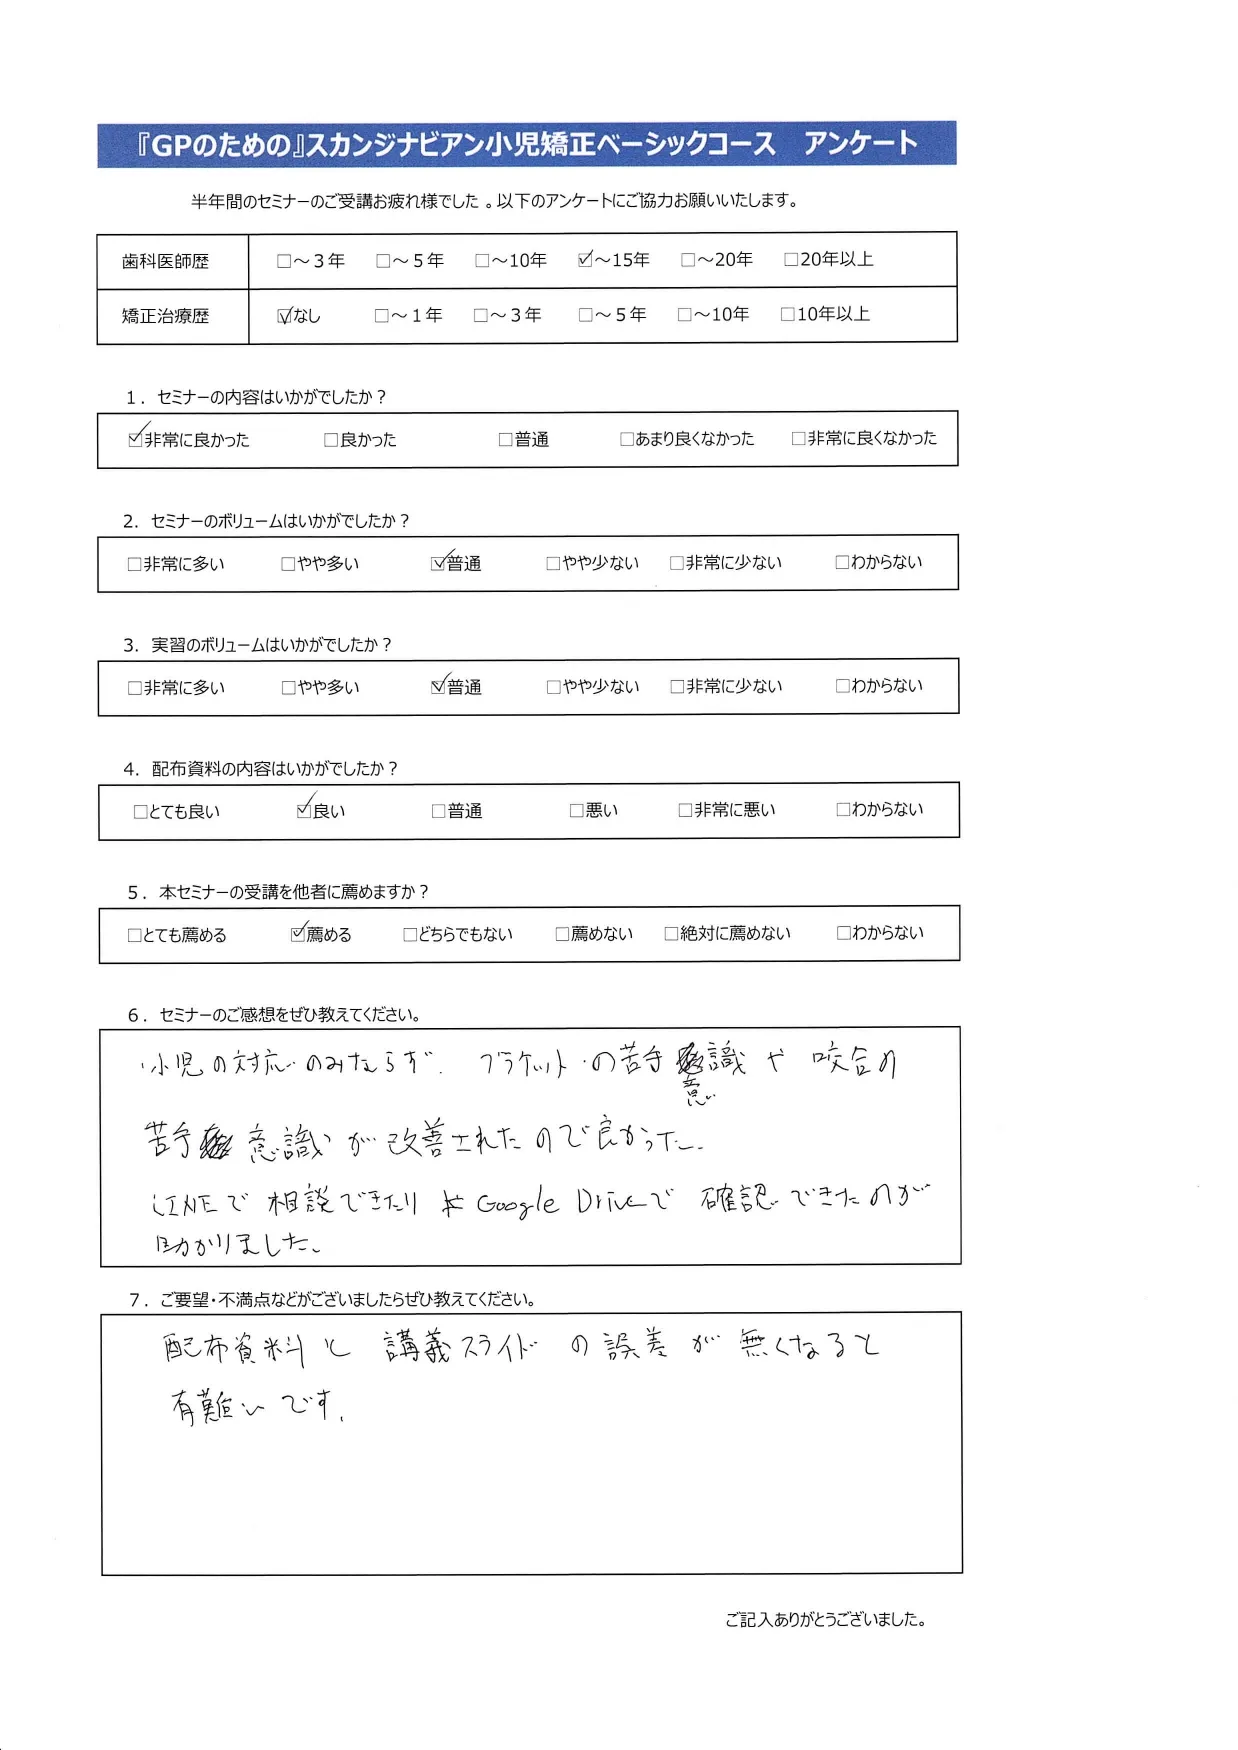 『GPのための』スカンジナビアン小児矯正ベーシックコース　アンケート
半年間のセミナーのご受講お疲れ様でした 。以下のアンケートにご協力お願いいたします。
歯科医師歴 □～３年 □～５年 □～10年 ☑～15年 □～20年 □20年以上
矯正治療歴 ☑なし □～１年 □～３年 □～５年 □～10年 □10年以上
１．セミナーの内容はいかがでしたか？
☑非常に良かった □良かった □普通 □あまり良くなかった □非常に良くなかった
2．セミナーのボリュームはいかがでしたか？
□非常に多い □やや多い ☑普通 □やや少ない □非常に少ない □わからない
3．実習のボリュームはいかがでしたか？
□非常に多い □やや多い ☑普通 □やや少ない □非常に少ない □わからない
4．配布資料の内容はいかがでしたか？
□とても良い ☑良い □普通 □悪い □非常に悪い □わからない
５．本セミナーの受講を他者に薦めますか？
□とても薦める ☑薦める □どちらでもない □薦めない □絶対に薦めない □わからない
６．セミナーのご感想をぜひ教えてください。
小児の対応のみならず、ブラケットの苦手意識や咬合の
苦手意識が改善されたので良かった。
LINEで相談できたり Google Driveで確認できたのが
助かりました。
７．ご要望・不満点などがございましたらぜひ教えてください。
配布資料と講義スライドの誤差が無くなると
有難いです。
ご記入ありがとうございました。